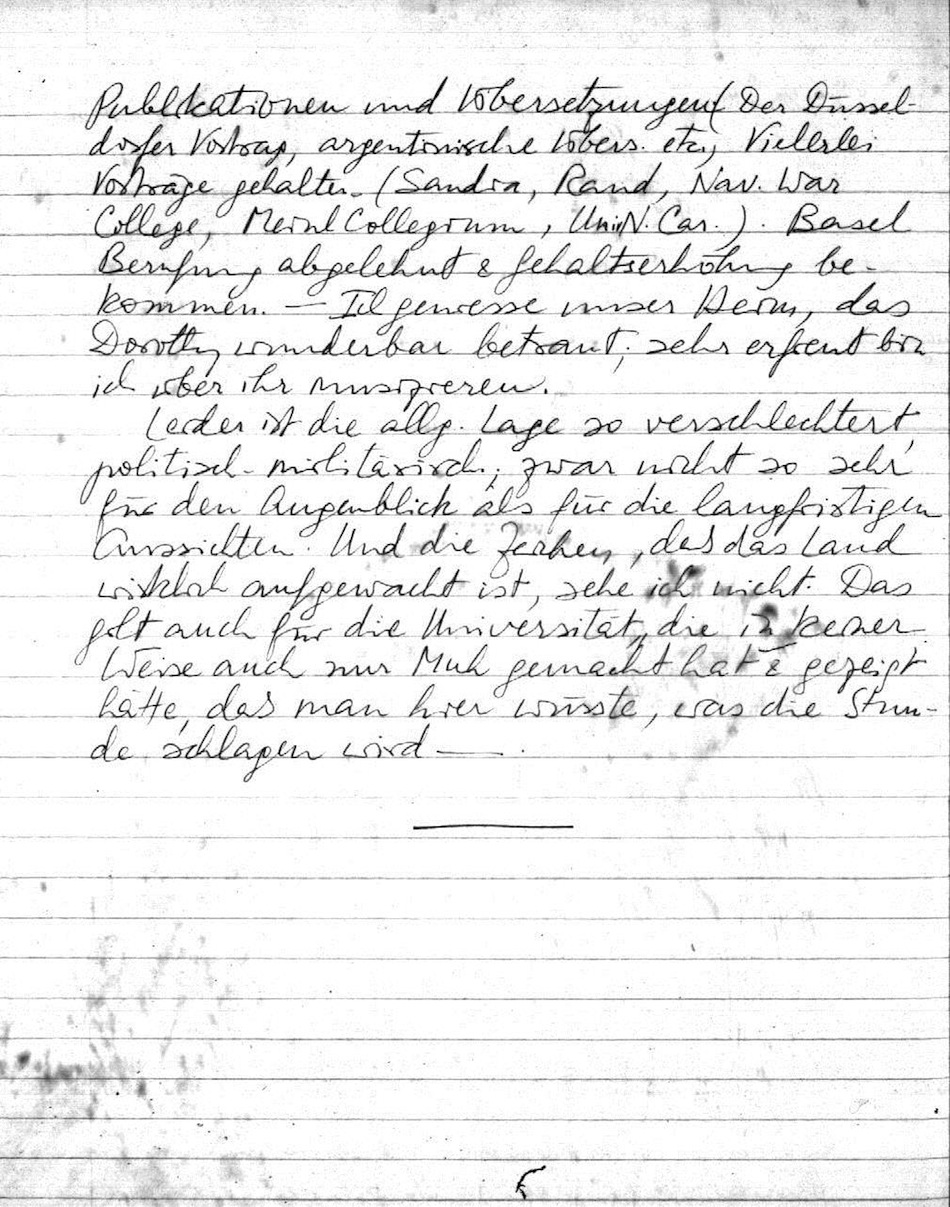 Publikationen und Übersetzungen (Der Düssel-
dorfer Vortrag, argentinische Übers. etc.) Vielerlei
Vorträge gehalten. (Sandia, Rand, Nav. War
College, Meinl Collegium, Uni N. Car.). Basel
Berufung abgelehnt & Gehaltserhöhung be-
kommen. — Ich geniesse unser Heim, das
Dorothy wunderbar betraut; sehr erfreut bin
ich über ihr musizieren.
Leider ist die allg. Lage so verschlechtert,
politisch-militärisch; zwar nicht so sehr
für den Augenblick als für die langfristigen
Aussichten. Und die Zeichen, daß das Land
wirklich aufgewacht ist, sehe ich nicht. Das
gilt auch für die Universität, die in keiner
Weise auch nur Muh gemacht hat & gezeigt
hätte, daß man hier wüsste, was die Stun-
de schlagen wird —.